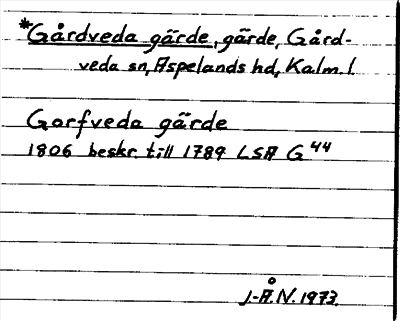 *Gårdveda gärde, gärde, Gård-
veda sn, Aspelands hd, Kalm. l.
Gorfveda gärde
1806 beskr. till 1789 LSA G 44
J-Å.N. 1973.